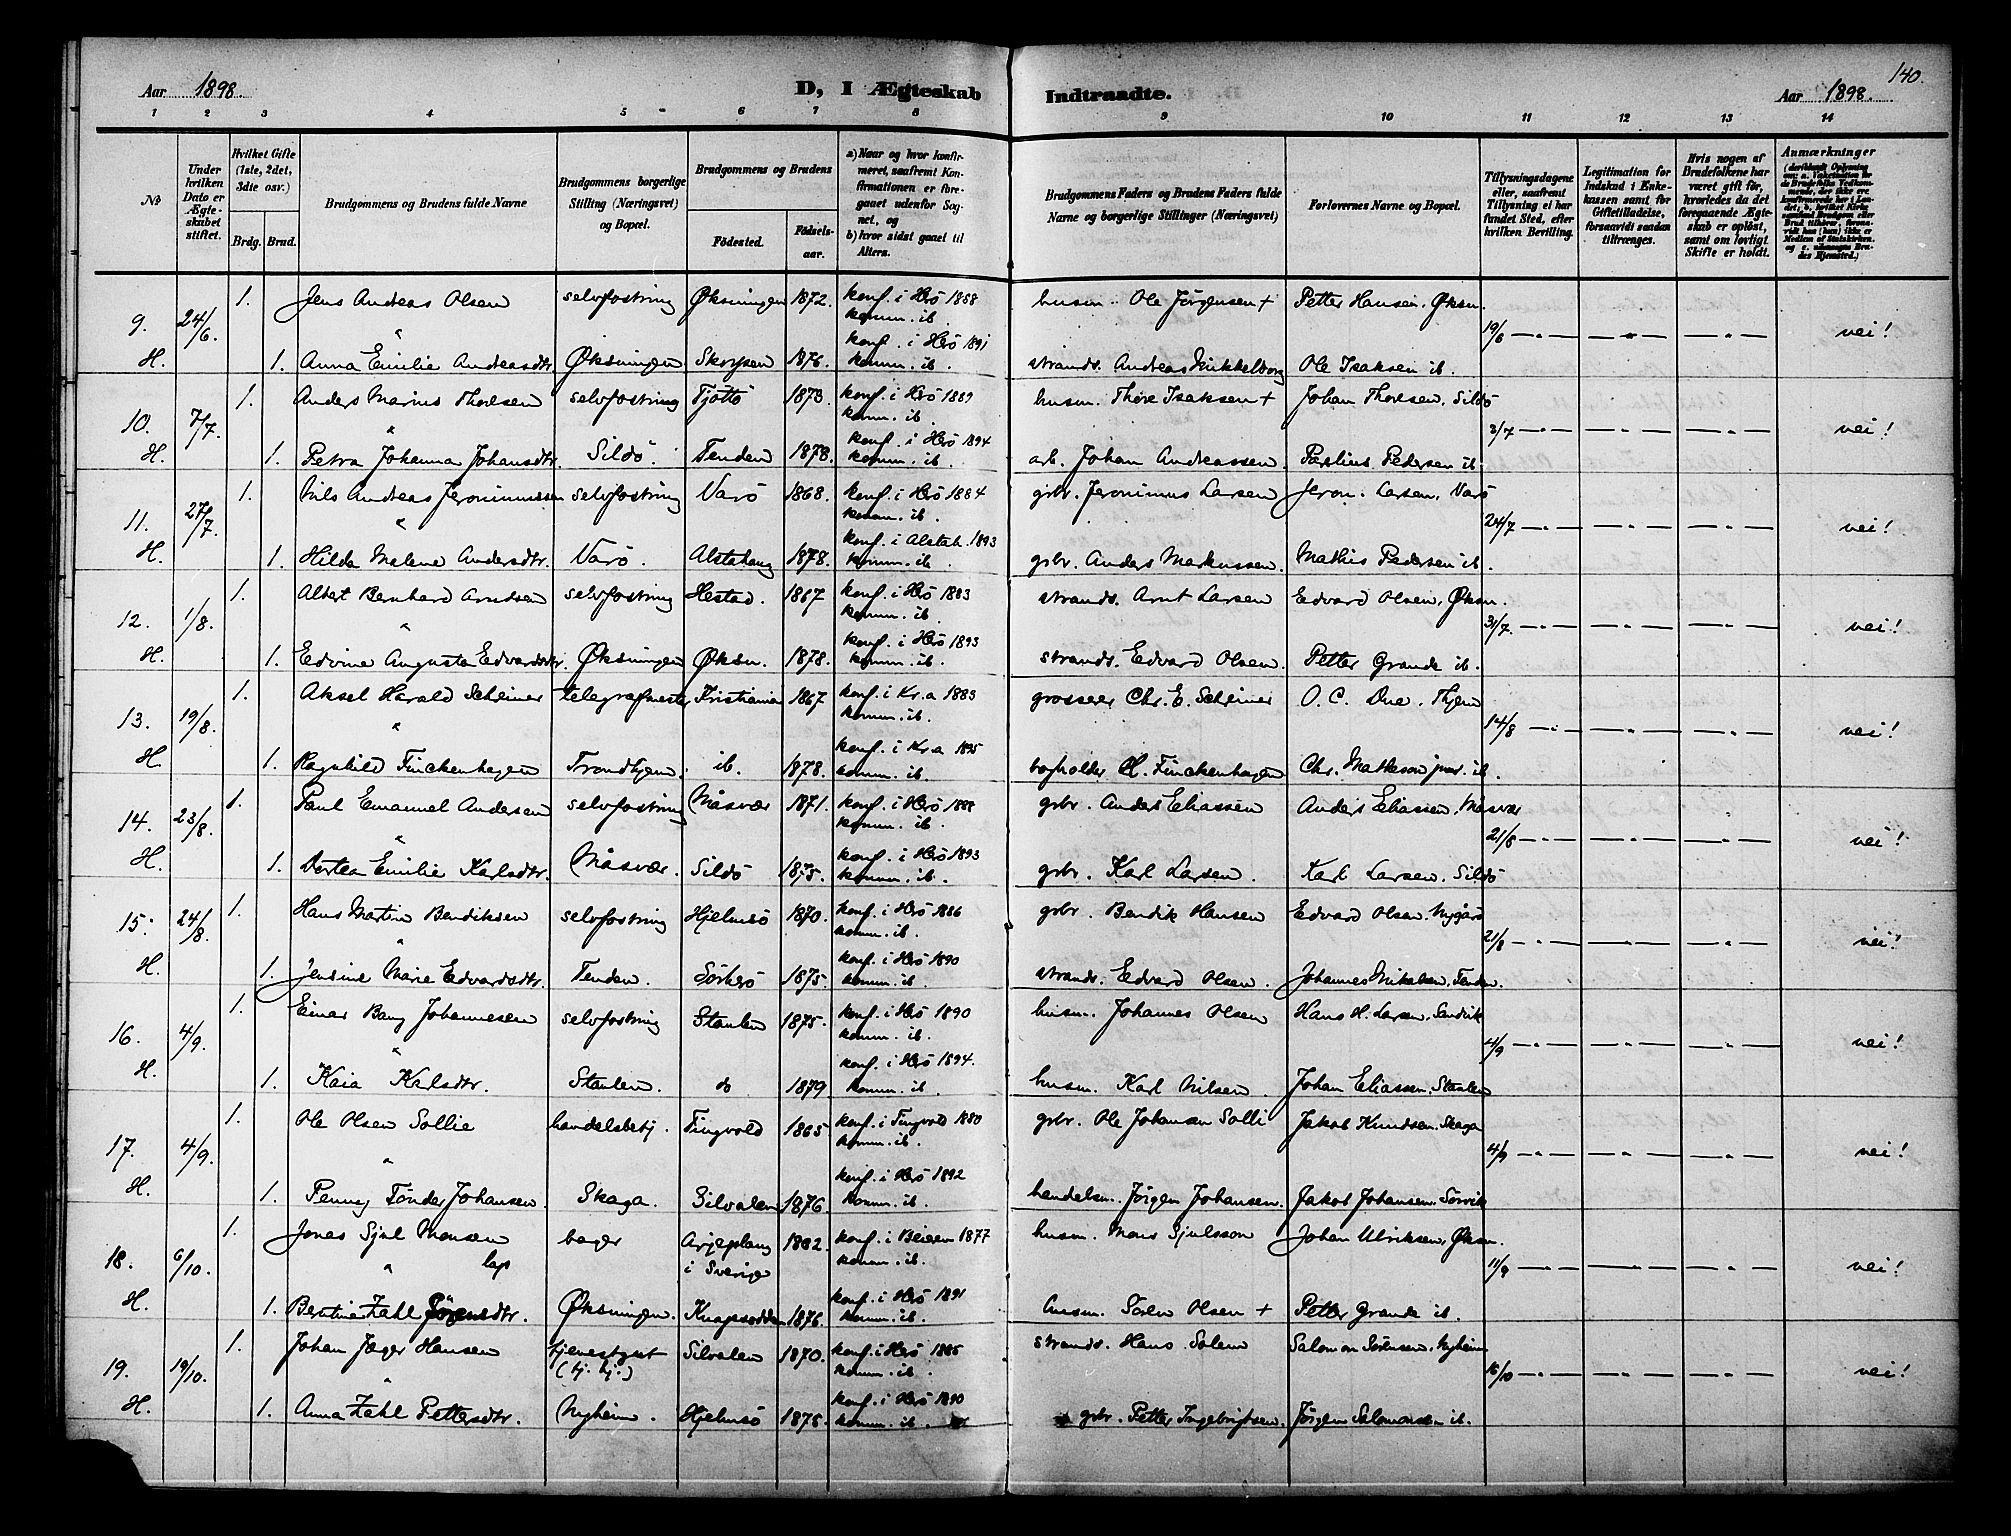 140.
Aar 1898. D, I Ægteskab Indtraadte. Aar 1898.
1 2 3 4 5 6 7 8 9 10 11 12 13 14
№
Under hvilken Dato er Ægteskabet stiftet.
Hvilket Gifte (1ste, 2det, 3die osv.)
Brdg. Brud.
Brudgommens og Brudens fulde Navne
Brudgommens borgerlige Stilling (Næringsvei) og Bopæl.
Brudgommens og Brudens
Fødested. Fødselsaar.
a) Naar og hvor konfirmeret, saafremt Konfirmationen er foregaaet udenfor Sognet, og
b) hvor sidst gaaet til Alters.
Brudgommens Faders og Brudens Faders fulde Navne og borgerlige Stillinger (Næringsvei)
Forlovernes Navne og Bopæl.
Tillysningsdagene eller, saafremt Tillysning ei har fundet Sted, efter hvilken Bevilling.
Legitimation for Indskud i Enkekassen samt for Giftetilladelse, forsaavidt saadan tiltrænges.
Hvis nogen af Brudefolkene har været gift før, hvorledes da det foregaaende Ægteskab er opløst, samt om lovligt Skifte er holdt.
Anmærkninger
9. 24/6 1. Jens Andreas Olsen selvfostring Øksningen 1872. konf. i Herö 1888 komm. ib husm. Ole Jörgensen + Petter Hansen, Øksn. 19/6 — „ — — „ — — „ — nei!
H. 1. Anna Emilie Andreasdtr. Øksningen 1876. konf. i Herö 1891 komm. ib. strands. Andreas Mikkelborg Ole Isaksen ib.
10. 7/7. 1. Anders Marius Thoresen selvfostring Tjöttö 1873. konf. i Herö 1889 komm. ib. husm. Thore Isaksen + Johan Thoresen, Sildö 3/7 — „ — — „ — — „ — nei!
H. 1. Petra Johanna Johansdtr. Sildö. Tenden 1878. konf. i Herö 1894 komm. ib. arb. Johan Andreassen. Pedersen ib.
11. 27/7. 1. Nils Andreas Jeronimussen selvfostring Varö 1868. konf. i Herö 1884 komm. ib. grbr. Jeronimus Larsen Jeron. Larsen, Varö 24/7 — „ — — „ — — „ — nei!
H. 1. Hilda Malene Andersdtr. Varö. Alstahaug 1878. konf. i Alstah. 1893 komm. ib. grbr. Anders Markussen. Mathis Pedersen ib.
12. 1/8. 1. Albert Bernhard Arndsen selvfostring Hestad. 1867 konf. i Herö 1883 komm. ib. strands. Arnt Larsen Edvard Olsen, Øksn. 31/7. — „ — — „ — — „ — nei!
H. 1. Edvine Augusta Edvardsdtr. Øksningen Øksn. 1878. konf. i Herö 1893 komm. ib. strands. Edvard Olsen. Petter Grande ib.
13. 19/8. 1. Aksel Harald Schreiner telegrafmester Kristiania 1867 konf. i Kr.a 1883 komm. ib. grosserer Chr. E. Schreiner O. C. Due. Thjem 14/8 — „ — — „ — — „ — nei!
H. 1. Ragnhild Finckenhagen Trondhjem. ib. 1878. konf. i Kr.a 1895 komm. ib. bogholder Finckenhagen Chr. Matheson jnr. ib.
14. 23/8. 1. Paul Emanuel Andersen selvfostring Måsvær 1871. konf. i Herö 1888 komm. ib. grbr. Anders Eliassen Anders Eliassen, Måsvær 21/8 — „ — — „ — — „ — nei!
H. 1. Dortea Emilie Karlsdtr. Måsvær. Sildö 1875. konf. i Herö 1893 komm. ib. grbr. Karl Larsen. Karl Larsen. Sildö
15. 24/8. 1. Hans Martin Bendiksen selvfostring Hjelmsö 1870. konf. i Herö 1886 komm. ib. grbr. Bendik Hansen Edvard Olsen, Nygård 21/8 — „ — — „ — — „ — nei!
H. 1. Jensine Marie Edvardsdtr. Tenden. Sörherö 1875. konf. i Herö 1890 komm. ib. strands. Edvard Olsen. Johannes Mikalsen, Tenden.
16. 4/9. 1. Einar Bang Johannesen selvfostring Staulen 1875. konf. i Herö 1890 komm. ib. husm. Johannes Olsen Hans H. Larsen, Sandvik 4/9 — „ — — „ — — „ — nei!
H. 1. Kaia Karlsdtr. Staulen. do 1879 konf. i Herö 1894. komm. ib. husm. Karl Nilsen. Johan Eliassen, Staulen
17. 4/9. 1. Ole Olsen Sollie handelsbetj. Tingvold 1865 konf. i Tingvold 1880 komm. ib. grbr. Ole Johansen Solli Jakob Knudsen. Skaga 4/9 — „ — — „ — — „ — nei!
H. 1. Penny Tönder Johansen. Skaga. Silvalen 1876. konf. i Herö 1892 komm. ib. handelsm. Jörgen Johansen. Jakob Johansen. Sörvik
18. 6/10. 1. Jonas Sjul Monsen lap bager Arjeplaug i Sverige konf. i Beieren 1877 komm. ib. husm. Mons Sjulsson Johan Ulriksen, Øksn. 11/9 — „ — — „ — — „ — nei!
H. 1. Bentine Zahl Sörensdtr. Øksningen. 1876. konf. i Herö 1891 komm. ib. husm. Sören Olsen + Petter Grande ib.
19. 19/10. 1. Johan Jæger Hansen tjenestgut Silvalen 1870. konf. i Herö 1885 komm. ib. strands. Hans Solem Salomon Sörensen, Nyheim 16/10 — „ — — „ — — „ — nei!
H. 1. Anna Zahl Pettersdtr. Nyheim. Hjelmsö 1875. konf. i Herö 1890 komm. ib. grbr. Petter Ingebrigtsen. Jörgen Salomonsen ib.